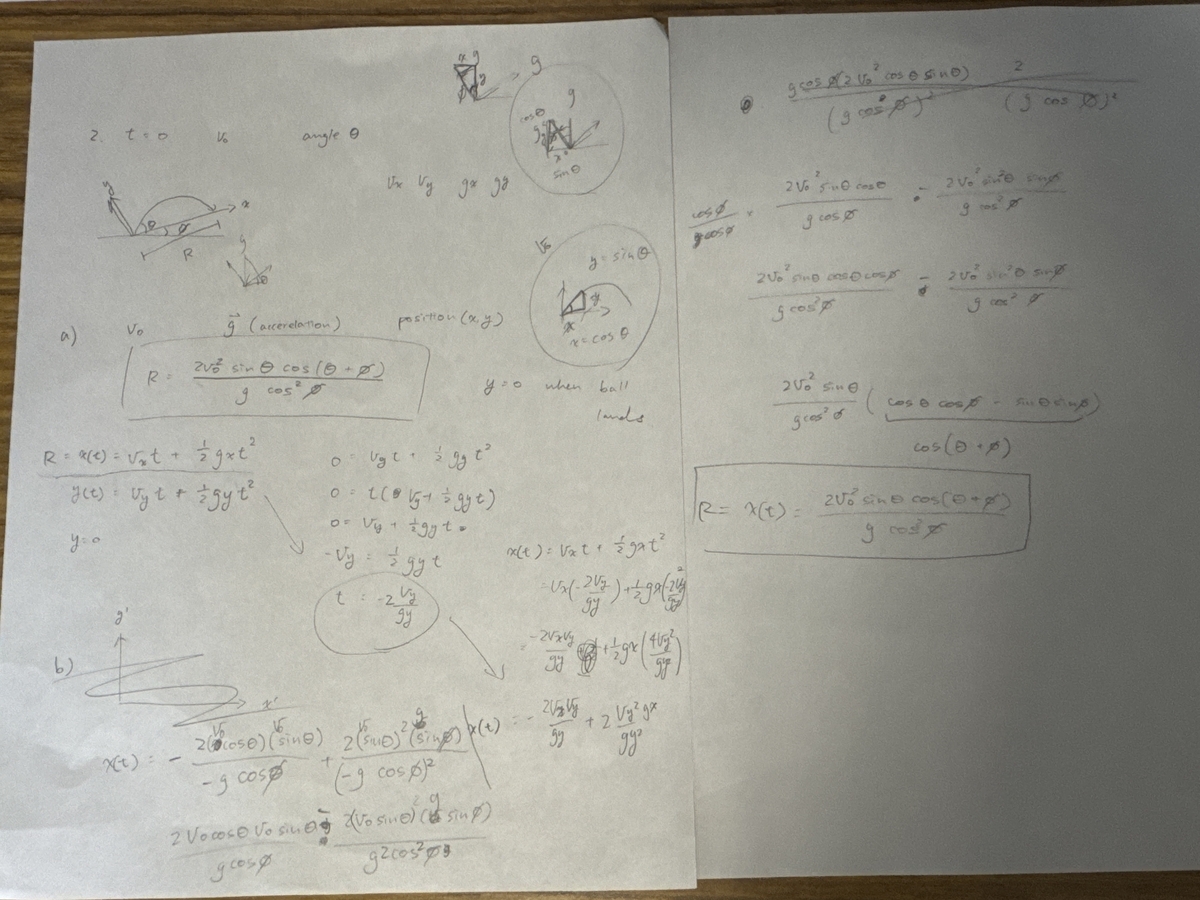 x g
y
φ
g
g
cosθ
gy
x
sinθ
2. t = 0 v₀ angle θ
Vx Vy gx gy
y
x
θ φ
R
y
θ
V₀
y = sinθ
y
x
x = cosθ
a) V₀ g⃗ (accerelation) position (x, y)
R = 2V₀² sinθ cos(θ + φ) / g cos² φ
y = 0 when ball
lands
R = x(t) = Vx t + ½ gx t²
y(t) = Vy t + ½ gy t²
y = 0
0 = Vy t + ½ gy t²
0 = t( Vy + ½ gy t)
0 = Vy + ½ gy t
-Vy = ½ gy t
t = -2 Vy / gy
x(t) = Vx t + ½ gx t²
= Vx (-2Vy / gy) + ½ gx (-2Vy / gy)²
= -2VxVy / gy + ½ gx (4Vy² / gy²)
x(t) = - 2VxVy / gy + 2 Vy² gx / gy²
b)
y'
x'
x(t) = - 2(V₀ cosθ)(V₀ sinθ) / -g cosφ + 2(V₀ sinθ)² (g sinφ) / (-g cosφ)²
2 V₀ cosθ V₀ sinθ / g cosφ - 2(V₀ sinθ)² (g sinφ) / g2cos²φ
g cosφ(2V₀² cosθ sinθ) / (g cosφ)² 2 / (g cosφ)²
cosφ / g cosφ × 2V₀² sinθ cosθ / g cosφ - 2V₀² sin²θ sinφ / g cos²φ
2V₀² sinθ cosθ cosφ / g cos²φ - 2V₀² sin²θ sinφ / g cos²φ
2V₀² sinθ / g cos²φ (cosθ cosφ - sinθ sinφ)
cos(θ + φ)
R = x(t) = 2V₀² sinθ cos(θ + φ) / g cos²φ